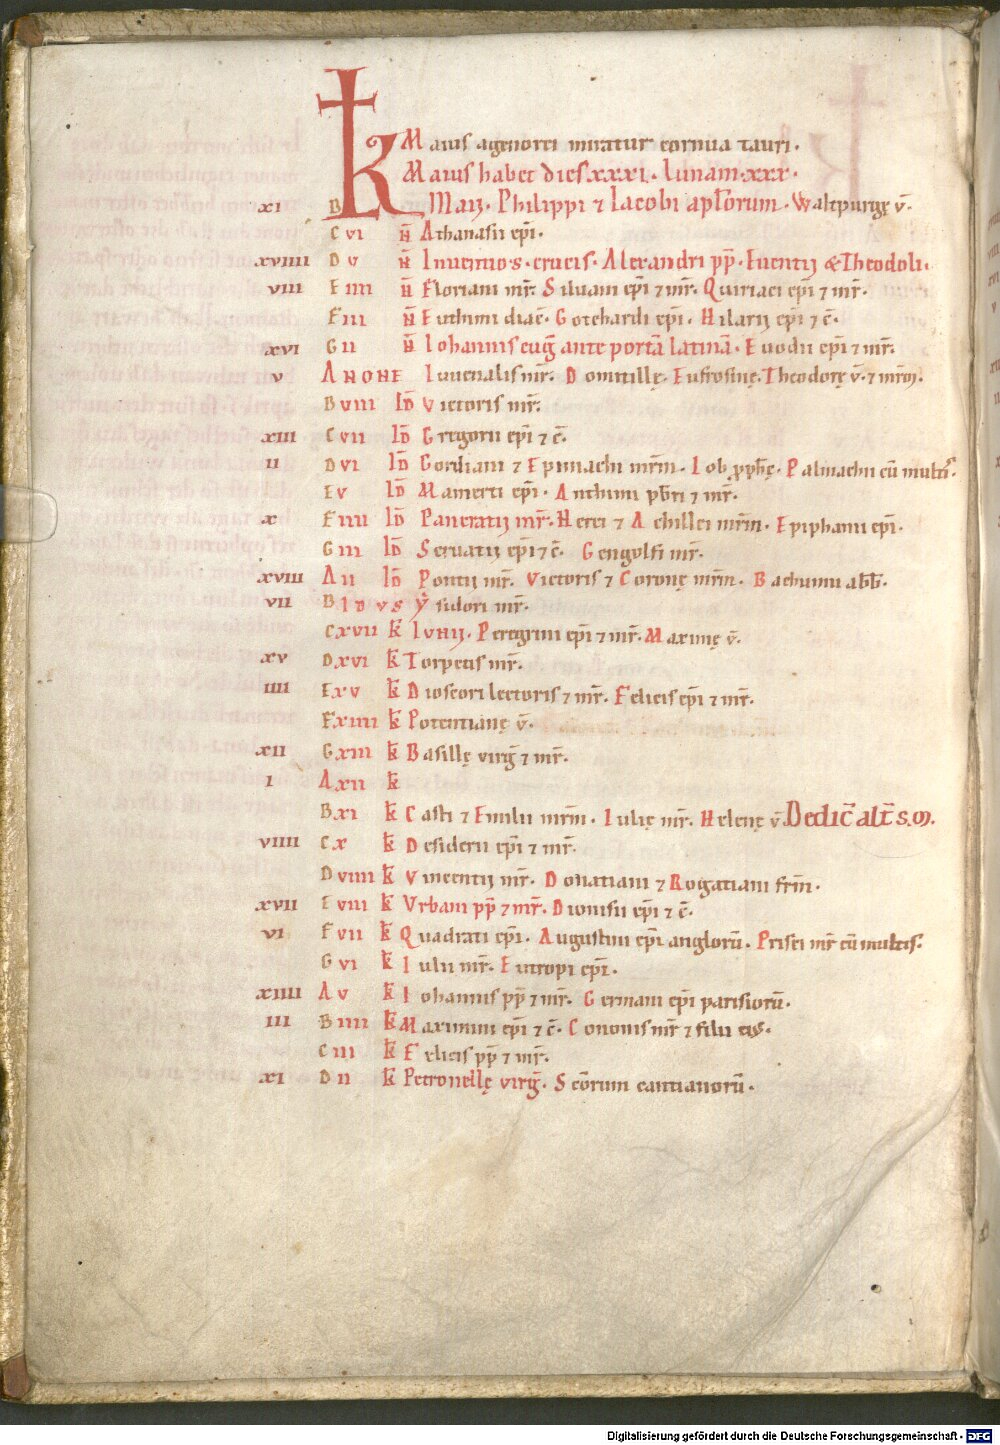 Maius agenorei miratur cornua tauri.
Maius habet dies xxxi. lunam xxx.
xi B K Maij. Philippi ⁊ Iacobi aplorum. Waltpurgę v̄.
C vi N̄ Athanasii ep̄i.
xviiii D v N̄ Inuentio s. crucis. Alexandri pp̄. Euentij & Theodoli.
viii E iiii N̄ Floriani mr̄. Siluani ep̄i ⁊ mr̄. Quiriaci ep̄i ⁊ mr̄.
F iii N̄ Euthimi diac̄. Gotehardi ep̄i. Hilarij ep̄i ⁊ c̄.
xvi G ii N̄ Iohannis euḡ ante portā latinā. Euodii ep̄i ⁊ mr̄.
v A NONE Iuuenalis mr̄. Domitillę. Eufrosinę. Theodorę v̄. ⁊ mr̄m.
B viii ID̄ Victoris mr̄.
xiii C vii ID̄ Gregorii ep̄i ⁊ c̄.
ii D vi ID̄ Gordiani ⁊ Epimachi mr̄m. Iob pph̄ę. Palmachii cū multis.
E v ID̄ Mamerti ep̄i. Anthimi pb̄ri ⁊ mr̄.
x F iiii ID̄ Pancratij mr̄. Nerei ⁊ Achillei mr̄m. Epiphanii ep̄i.
G iii ID̄ Seruatij ep̄i ⁊ c̄. Gengolfi mr̄.
xviii A ii ID̄ Pontii mr̄. Victoris ⁊ Coronę mr̄m. Bachumii abb̄.
vii B IDVS Ysidori mr̄.
C xvii k̄ IVNIJ. Peregrini ep̄i ⁊ mr̄. Maximę v̄.
xv D xvi k̄ Torpetis mr̄.
iiii E xv k̄ Dioscori lectoris ⁊ mr̄. Felicis ep̄i ⁊ mr̄.
F xiiii k̄ Potentianę v̄.
xii G xiii k̄ Basillę virḡ ⁊ mr̄.
i A xii k̄
B xi k̄ Casti ⁊ Emilii mr̄m. Iulię mr̄. Helenę v̄. Dedic̄ alt̄ s. m.
viiii C x k̄ Desiderii ep̄i ⁊ mr̄.
D viiii k̄ Vincentij mr̄. Donatiani ⁊ Rogatiani fr̄m.
xvii E viii k̄ Vrbani pp̄ ⁊ mr̄. Dionisii ep̄i ⁊ c̄.
vi F vii k̄ Quadrati ep̄i. Augustini ep̄i anglorū. Prisci mr̄ cū multis.
G vi k̄ Iulii mr̄. Eutropi ep̄i.
xiiii A v k̄ Iohannis pp̄ ⁊ mr̄. Germani ep̄i parisiorū.
iii B iiii k̄ Maximini ep̄i ⁊ c̄. Cononis mr̄ ⁊ filii eius.
C iii k̄ Felicis pp̄ ⁊ mr̄.
xi D ii k̄ Petronellę virḡ. Sc̄orum cantianorū.
Digitalisierung gefördert durch die Deutsche Forschungsgemeinschaft - DFG